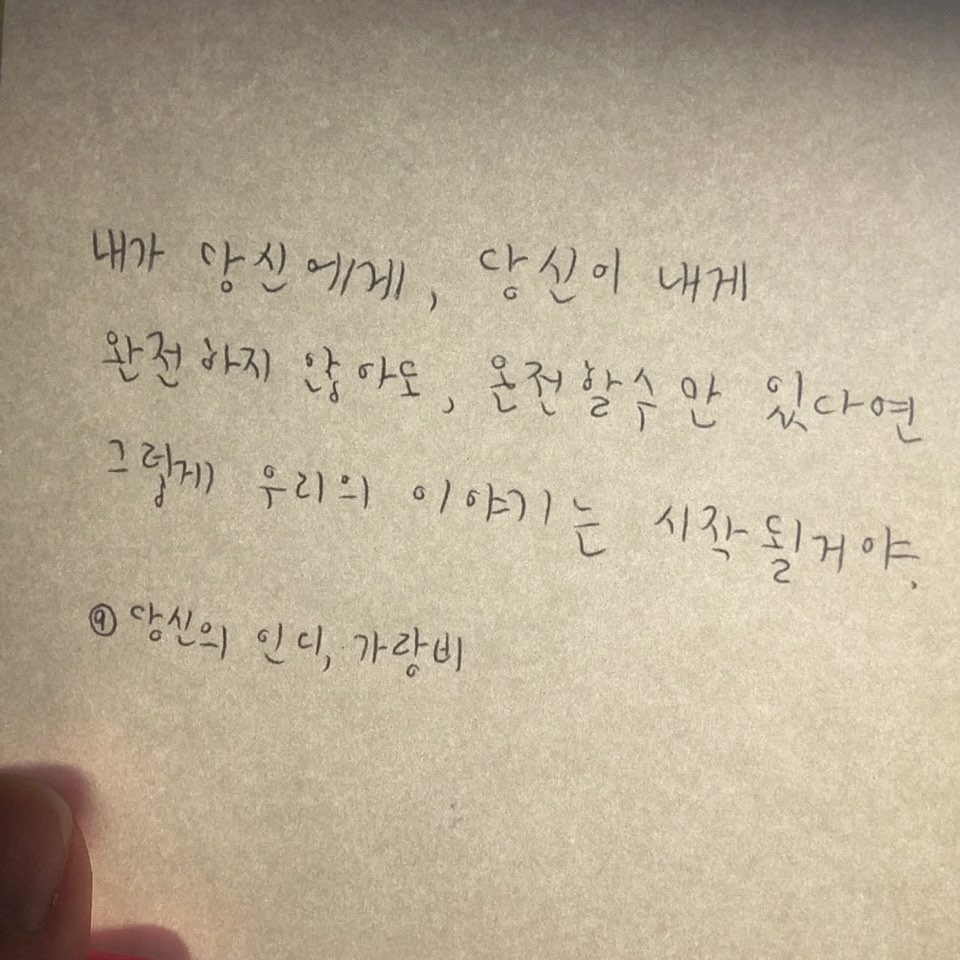 내가 당신에게, 당신이 내게
완전하지 않아도, 온전할수만 있다면
그렇게 우리의 이야기는 시작될거야.
@당신의 인디, 가랑비